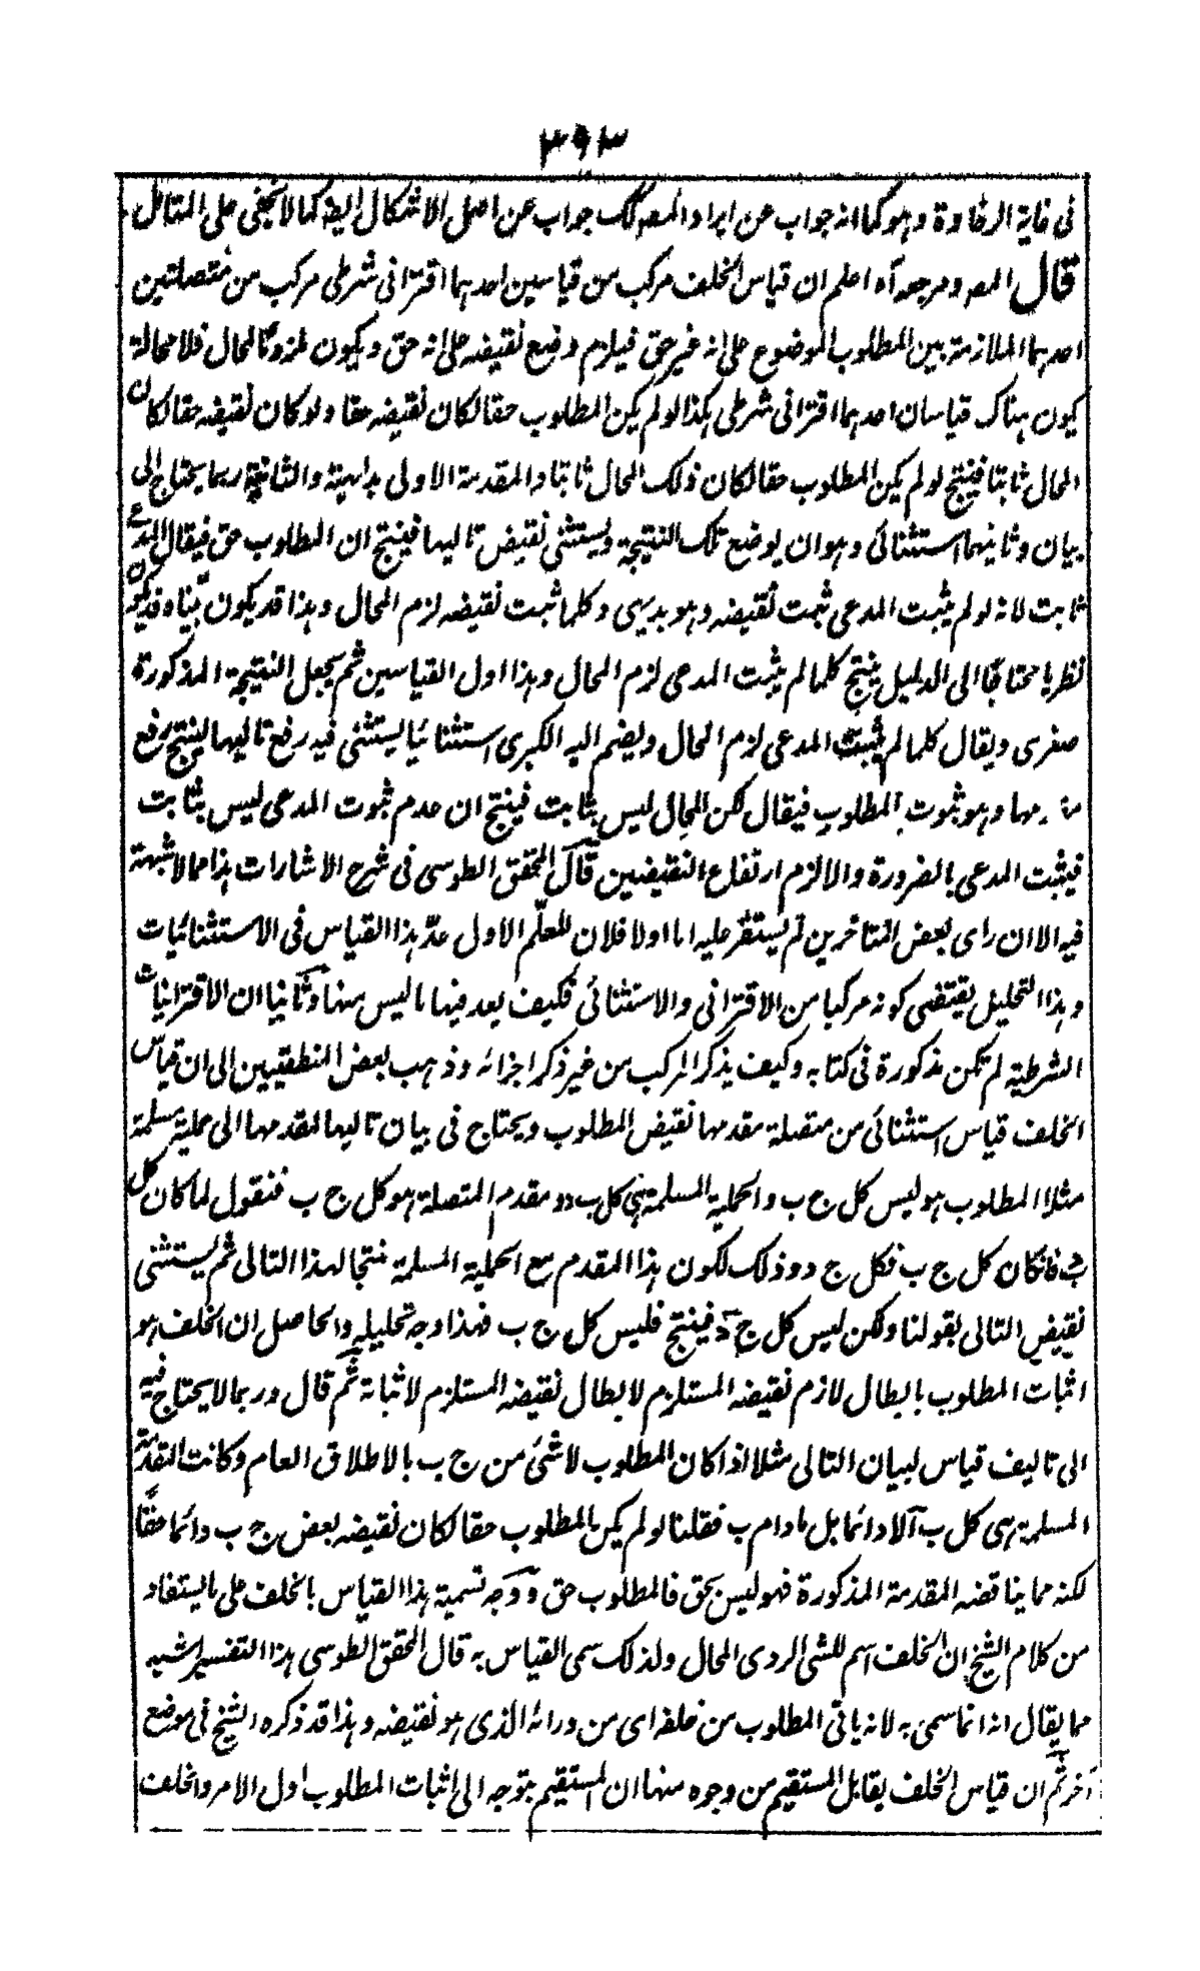 ٣٩٣
فى غاية الرخاوة وهو كما انه جواب عن ايراد المصـ كذلك جواب عن اصل الاشكال ايضا كما لا يخفى على المتامل
قال المصـ ومرجعه آه اعلم ان قياس الخلف مركب من قياسين احدهما اقترانى شرطى مركب من متصلتين
احدهما الملازمة بين المطلوب الموضوع على انه غير حق فيلزم وضع نقيضه على انه حق ويكون ملزوما لمحال فلا محالة
يكون هناك قياسان احدهما اقترانى شرطى هكذا لو لم يكن المطلوب حقا لكان نقيضه حقا ولو كان نقيضه حقا لكان
المحال ثابتا فينتج لو لم يكن المطلوب حقا لكان ذلك المحال ثابتا والمقدمة الاولى بديهية والثانية ربما يحتاج الى
بيان وثانيهما استثنائى وهو ان يوضع تلك النتيجة ويستثنى نقيض تاليها فينتج ان المطلوب حق فيقال المدعى
ثابت لانه لو لم يثبت المدعى ثبت نقيضه وهو بديهى وكلما ثبت نقيضه لزم المحال وهذا قد يكون بيّنا وقد يكون
نظريا محتاجا الى الدليل ينتج كلما لم يثبت المدعى لزم المحال وهذا اول القياسين ثم يجعل النتيجة المذكورة
صغرى ويقال كلما لم يثبت المدعى لزم المحال ويضم اليه الكبرى استثنائيا يستثنى فيه رفع تاليها لينتج رفع
مقدمها وهو ثبوت المطلوب فيقال لكن المحال ليس بثابت فينتج ان عدم ثبوت المدعى ليس بثابت
فيثبت المدعى بالضرورة والا لزم ارتفاع النقيضين قال المحقق الطوسى فى شرح الاشارات هذا مما لا شبهة
فيه الا ان راى بعض المتاخرين لم يستقر عليه اما اولا فلان المعلّم الاول عدّ هذا القياس فى الاستثنائيات
وهذا التحليل يقتضى كونه مركبا من الاقترانى والاستثنائى فكيف يعد فيها ما ليس منها وثانيا ان الاقترانيات
الشرطية لم تكن مذكورة فى كتابه وكيف يذكر المركب من غير ذكر اجزائه وذهب بعض المنطقيين الى ان قياس
الخلف قياس استثنائى من متصلة مقدمها نقيض المطلوب ويحتاج فى بيان تاليها لمقدمها الى حملية مسلمة
مثلا المطلوب هو ليس كل ج ب والحملية المسلمة هى كل ب د ومقدم المتصلة هو كل ج ب فنقول لما كان كل
ب د فان كان كل ج ب فكل ج د وذلك لكون هذا المقدم مع الحملية المسلمة منتجا لهذا التالى ثم يستثنى
نقيض التالى بقولنا ولكن ليس كل ج د فينتج فليس كل ج ب فهذا وجه تحليله والحاصل ان الخلف هو
اثبات المطلوب بابطال لازم نقيضه المستلزم لابطال نقيضه المستلزم لاثباته ثم قال وربما لا يحتاج فيه
الى تاليف قياس لبيان التالى مثلا اذا كان المطلوب لا شئ من ج ب بالاطلاق العام وكانت المقدمة
المسلمة هى كل ب آ لا دائما بل مادام ب فقلنا لو لم يكن المطلوب حقا لكان نقيضه بعض ج ب دائما حقًا
لكنه مما يناقضه المقدمة المذكورة فهو ليس بحق فالمطلوب حق ووجه تسمية هذا القياس بالخلف على ما يستفاد
من كلام الشيخ ان الخلف اسم للشئ الردى المحال ولذلك سمى القياس به قال المحقق الطوسى هذا التفسير اشبه
مما يقال انه انما سمى به لانه ياتى المطلوب من خلفه اى من ورائه الذى هو نقيضه وهذا قد ذكره الشيخ فى موضع
آخر ثم ان قياس الخلف يقابل المستقيم من وجوه منها ان المستقيم يتوجه الى اثبات المطلوب اول الامر والخلف